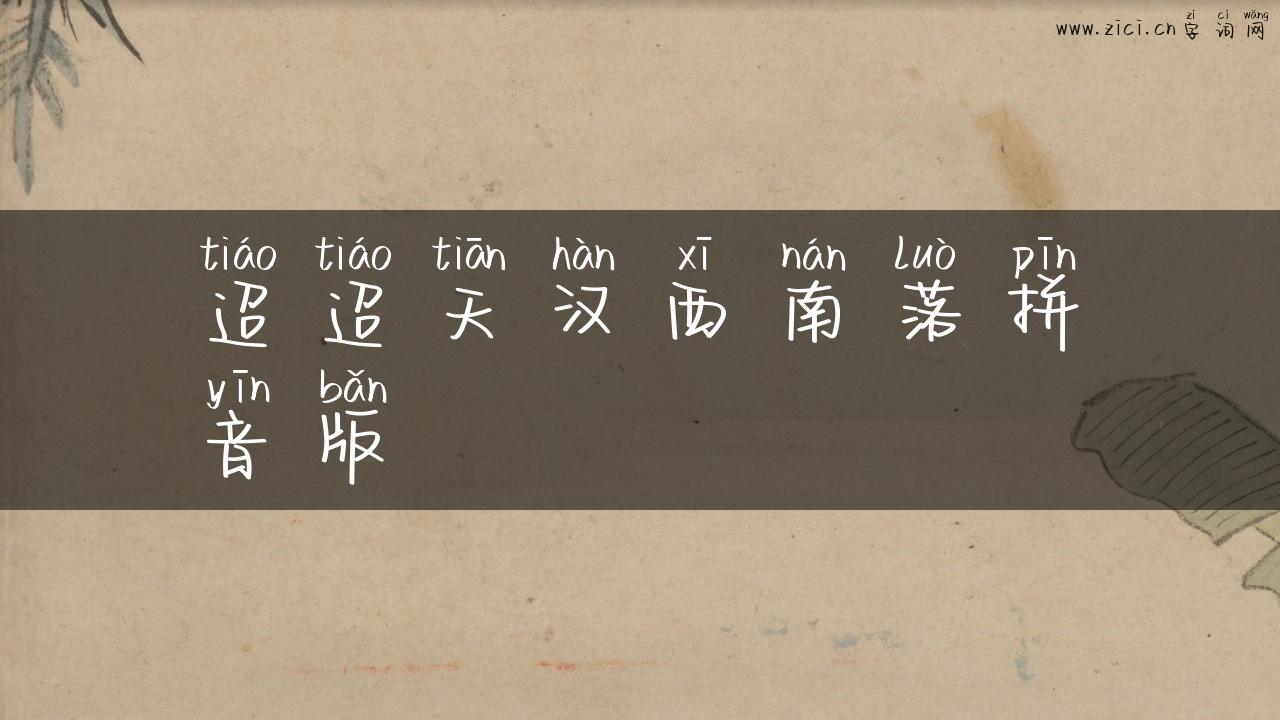 zì cí wǎng
www.zici.cn 字 词 网
tiáo tiáo tiān hàn xī nán luò pīn
迢 迢 天 汉 西 南 落 拼
yīn bǎn
音 版